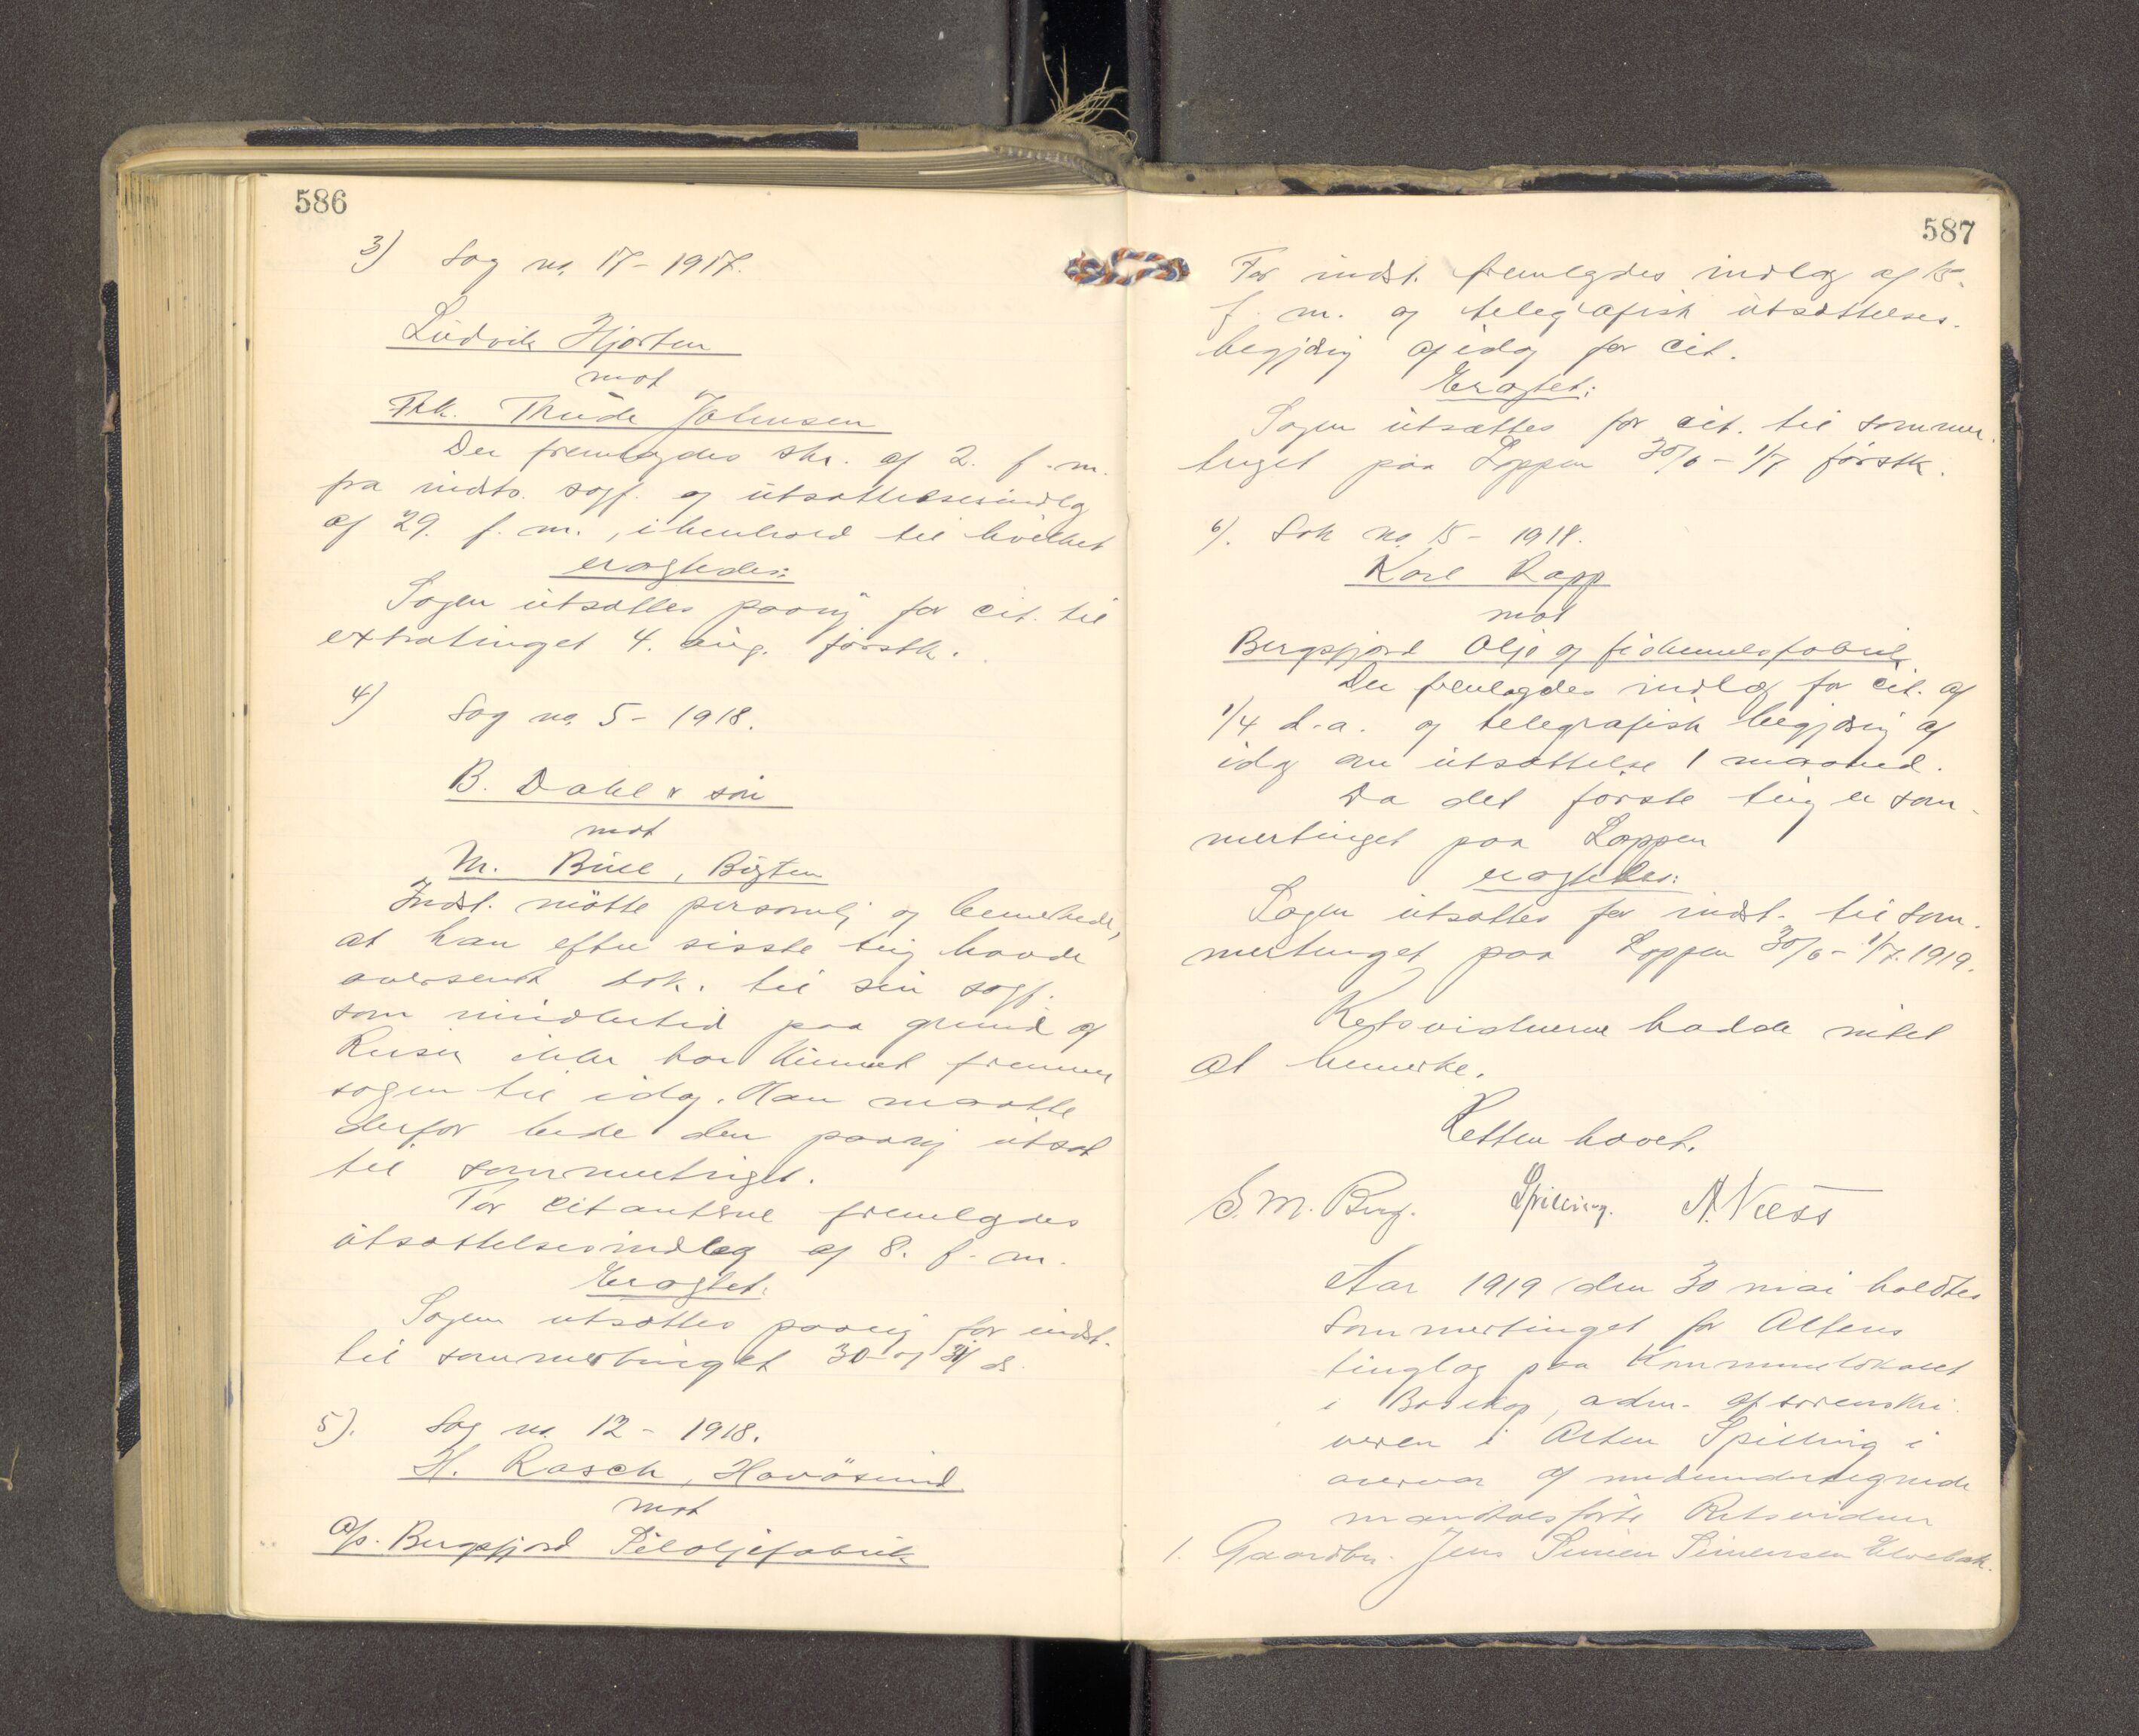 586
3) Sag no. 17 - 1917.
Ludvik Hjorten
mot
Frk. Thrude Johnsen
Der fremlagdes skr. af 2. f. m.
fra indst. sagf. og utsættelsesindlæg
af 29. f. m., i henhold til hvilket
eragtedes:
Sagen utsættes paany for cit. til
extratinget 4. aug. førstk.
4) Sag no. 5 - 1918.
B. Dahl & søn
mot
M. Bull, Bugten
Indst. møtte personlig og bemerkede,
at han efter sisste ting havde
oversendt dok. til sin sagf.
som imidlertid paa grund af
Reiser ikke har kunnet fremme
sagen til idag. Han maatte
derfor bede den paany utsat
til sommertinget.
For citanterne fremlagdes
utsættelsesindlæg af 8. f. m.
Eragtet:
Sagen utsættes paany for indst.
til sommertinget 30 og 31 ds.
5). Sag no. 12 - 1918.
H. Rasch, Havøsund
mot
A/s. Bergsfjord Sildoljefabrik
587
For indst. fremlagdes indlæg af 15.
f. m. og telegrafisk utsættelses-
begjæring af idag for cit.
Eragtet:
Sagen utsættes for cit. til sommer-
tinget paa Loppen 30/6 - 1/7 førstk.
6). Sak no. 15 - 1918.
Karl Rapp
mot
Bergsfjord Olje og fiskemelsfabrik
Der fremlagdes indlæg for cit. af
1/4 d. a. og telegrafisk begjæring af
idag om utsættelse 1 maaned.
Da det første ting er som-
mertinget paa Loppen
eragtedes:
Sagen utsættes for indst. til som-
mertinget paa Loppen 30/6 - 1/7. 1919.
Retsvidnerne hadde intet
at bemerke.
Retten hævet.
S. M. Berg. Spilling. A. Næss
Aar 1919 den 30 mai holdtes
Sommertinget for Altens
tinglag paa Kommunelokalet
i Bosekop, adm. af sorenskri-
veren i Alten Spilling i
overvær af medundertegnede
mandtalsførte Retsvidner
1. Gaardbr. Jens Simen Simensen Elvebak.